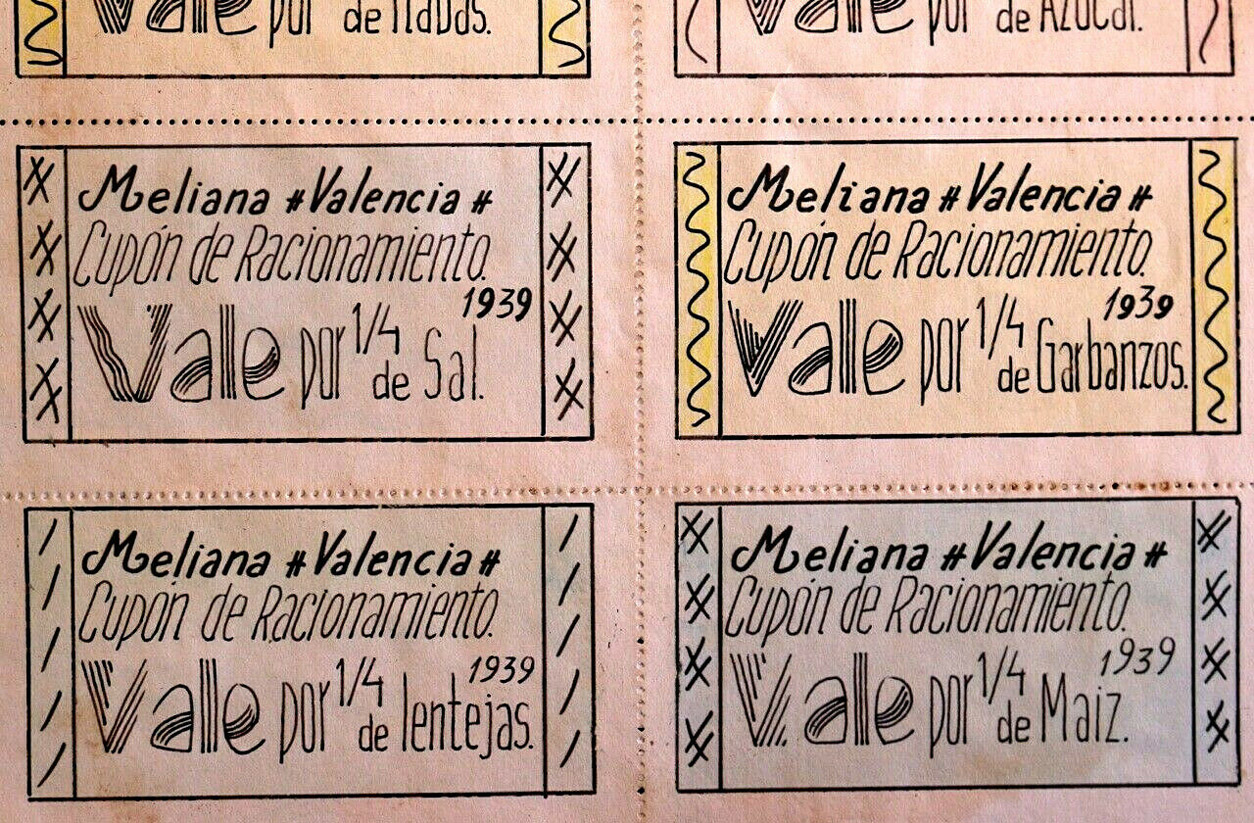 Vale por de Habas.
Vale por de Azúcar.
Meliana # Valencia #
Cupón de Racionamiento.
1939
Vale por 1/4 de Sal.
Meliana # Valencia #
Cupón de Racionamiento.
1939
Vale por 1/4 de Garbanzos.
Meliana # Valencia #
Cupón de Racionamiento.
1939
Vale por 1/4 de lentejas.
Meliana # Valencia #
Cupón de Racionamiento.
1939
Vale por 1/4 de Maiz.